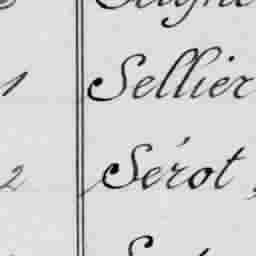 1 Sellier
2 Sérot,